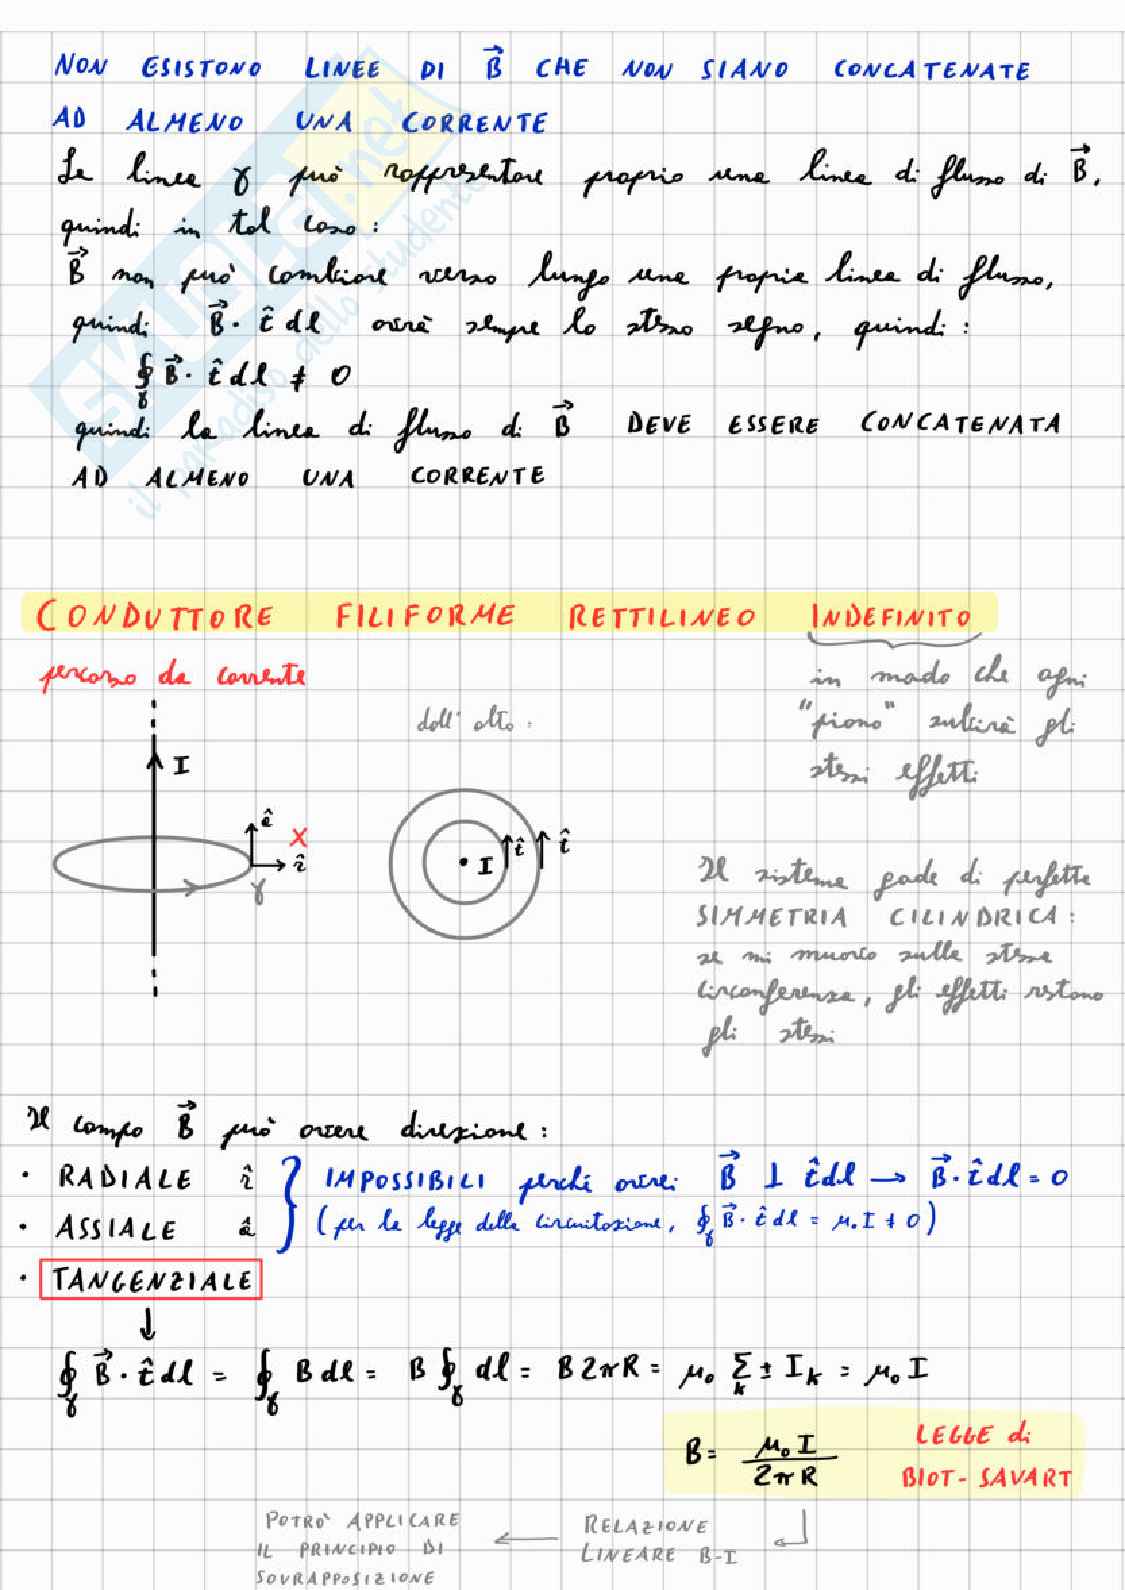 NON ESISTONO LINEE DI B⃗ CHE NON SIANO CONCATENATE
AD ALMENO UNA CORRENTE
La linea γ può rappresentare proprio una linea di flusso di B⃗,
quindi in tal caso:
B⃗ non può cambiare verso lungo una propria linea di flusso,
quindi B⃗ · t̂ dl avrà sempre lo stesso segno, quindi:
∮γ B⃗ · t̂ dl ≠ 0
quindi la linea di flusso di B⃗ DEVE ESSERE CONCATENATA
AD ALMENO UNA CORRENTE
SKUOLA.net
il paradiso dello studente
CONDUTTORE FILIFORME RETTILINEO INDEFINITO
percorso da corrente
in modo che ogni
"piano" subirà gli
stessi effetti
dall'alto:
I
â
x
r̂
γ
I
t̂
t̂
Il sistema gode di perfetta
SIMMETRIA CILINDRICA:
se mi muovo sulla stessa
circonferenza, gli effetti restano
gli stessi
Il campo B⃗ può avere direzione:
· RADIALE r̂
· ASSIALE â
} IMPOSSIBILI perché avrei B⃗ ⊥ t̂ dl → B⃗ · t̂ dl = 0
(per la legge della circuitazione, ∮γ B⃗ · t̂ dl = μ₀ I ≠ 0)
· TANGENZIALE
↓
∮γ B⃗ · t̂ dl = ∮γ B dl = B ∮γ dl = B 2πR = μ₀ Σk ± Ik = μ₀ I
B = μ₀ I / 2πR
LEGGE di
BIOT-SAVART
RELAZIONE
LINEARE B-I
POTRÒ APPLICARE
IL PRINCIPIO DI
SOVRAPPOSIZIONE